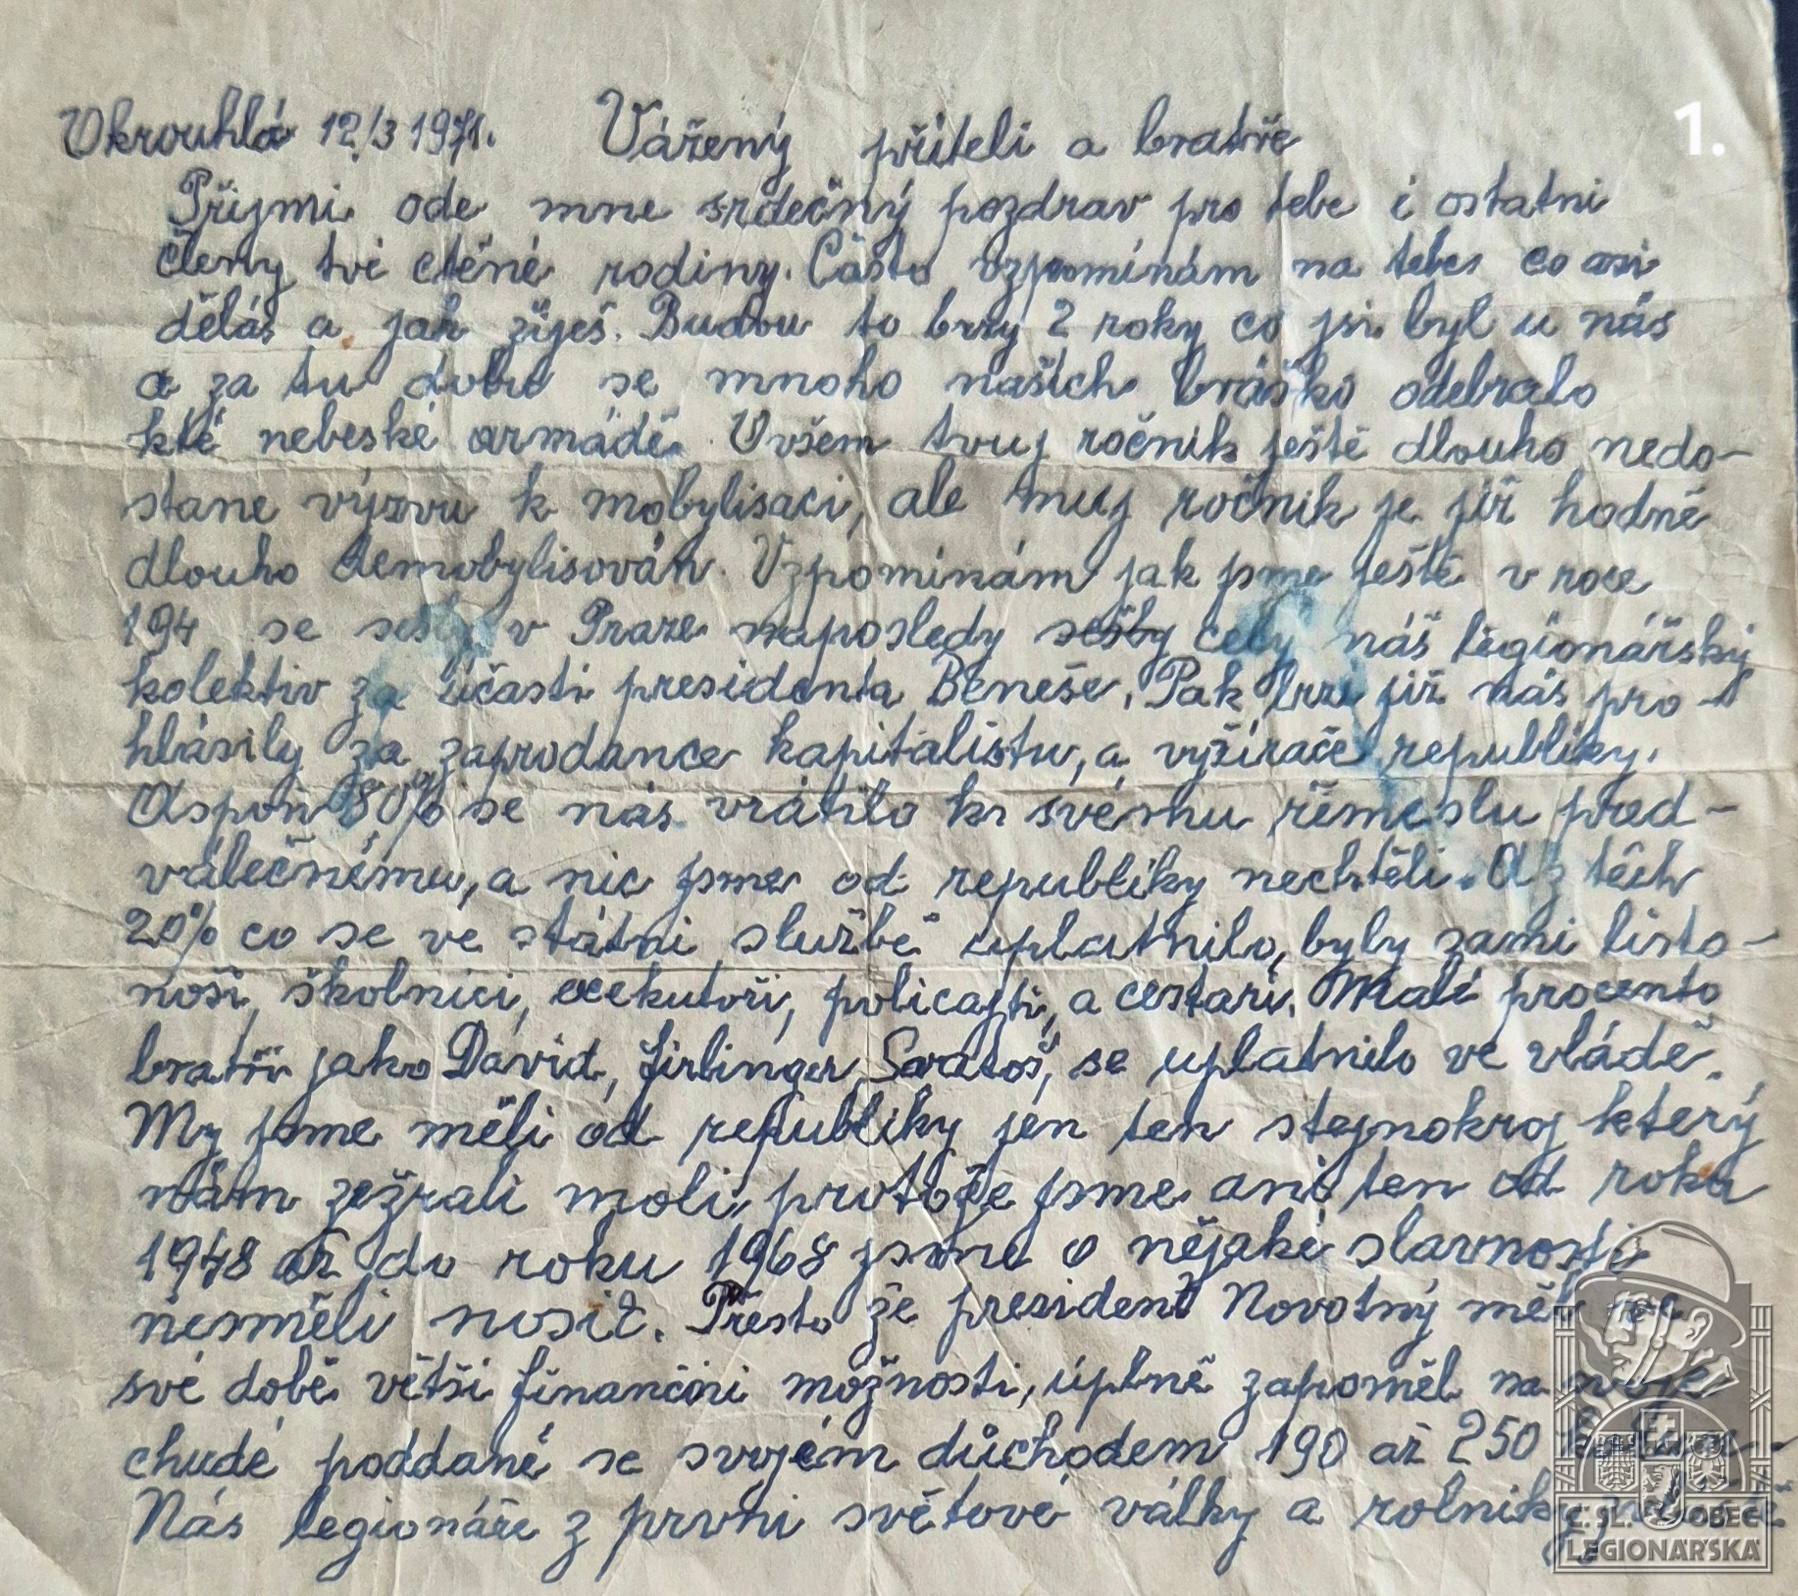 Okrouhlá 12./3 1971. Vážený příteli a bratře
1.
Přijmi ode mne srdečný pozdrav pro tebe i ostatni
členy tvé ctěné rodiny. Často vzpomínám na tebe co asi
děláš a jak žiješ. Budou to brzy 2 roky co jsi byl u nás
a za tu dobu se mnoho našich brášků odebralo
kté nebeské armádě. Ovšem tvuj ročnik ještě dlouho nedo-
stane výzvu k mobylisaci, ale muj ročnik je již hodně
dlouho demobylisován. Vzpomínám jak jsme ještě v roce
194 se sešly v Praze naposledy sešly celý náš legionářský
kolektiv za účasti presidenta Beneše. Pak brzi již nás pro-
hlásily za zaprodance kapitalistu, a vyžírače republiky.
Aspoň 80% se nás vrátilo k svému řemeslu před-
válečnému, a nic jsme od republiky nechtěli. A z těch
20% co se ve státni službě uplatnilo, byly sami listo-
noši, školnici, exekutoři, policajti, a cestaři. Malé procento
bratři jako David, Firlinger, Svatoš, se uplatnilo ve vládě.
My jsme měli od republiky jen ten stejnokroj který
nám zežrali moli, protože jsme ani ten od roku
1948 až do roku 1968 jsme o nějaké slavnosti
nesměli nosit. Přesto že president Novotný měl ve
své době větší finančni možnosti, úplně zapoměl na svoje
chudé poddané se svojém důchodem 190 až 250
Nás legionáře z prvni světové války a rolniky
Č. SL. OBEC
LEGIONÁŘSKÁ